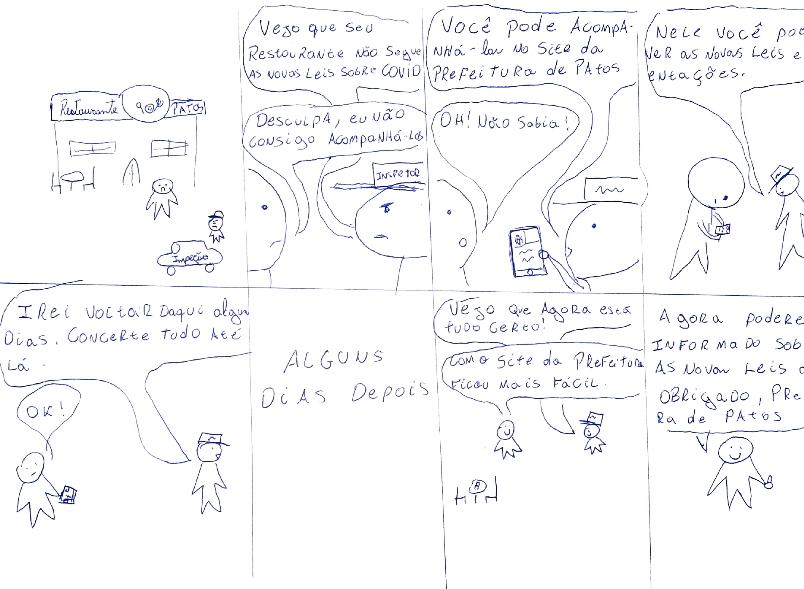 Restaurante
PATOS
Impeção
Vejo que seu
Restaurante não segue
as novas leis sobre COVID
Desculpa, eu não
consigo acompanhá-los
INSPETOR
Você pode acompa-
nhá-lar no site da
Prefeitura de Patos
OH! Não sabia!
Nele você
ver as novas leis e
entações.
Irei voltar daqui algun
dias. Concerte tudo até
lá.
OK!
ALGUNS
DIAS DEPOIS
Vejo que agora está
tudo certo!
Com o site da Prefeitura
ficou mais fácil.
Agora
informado
as novas leis
obrigado,
ra de Patos